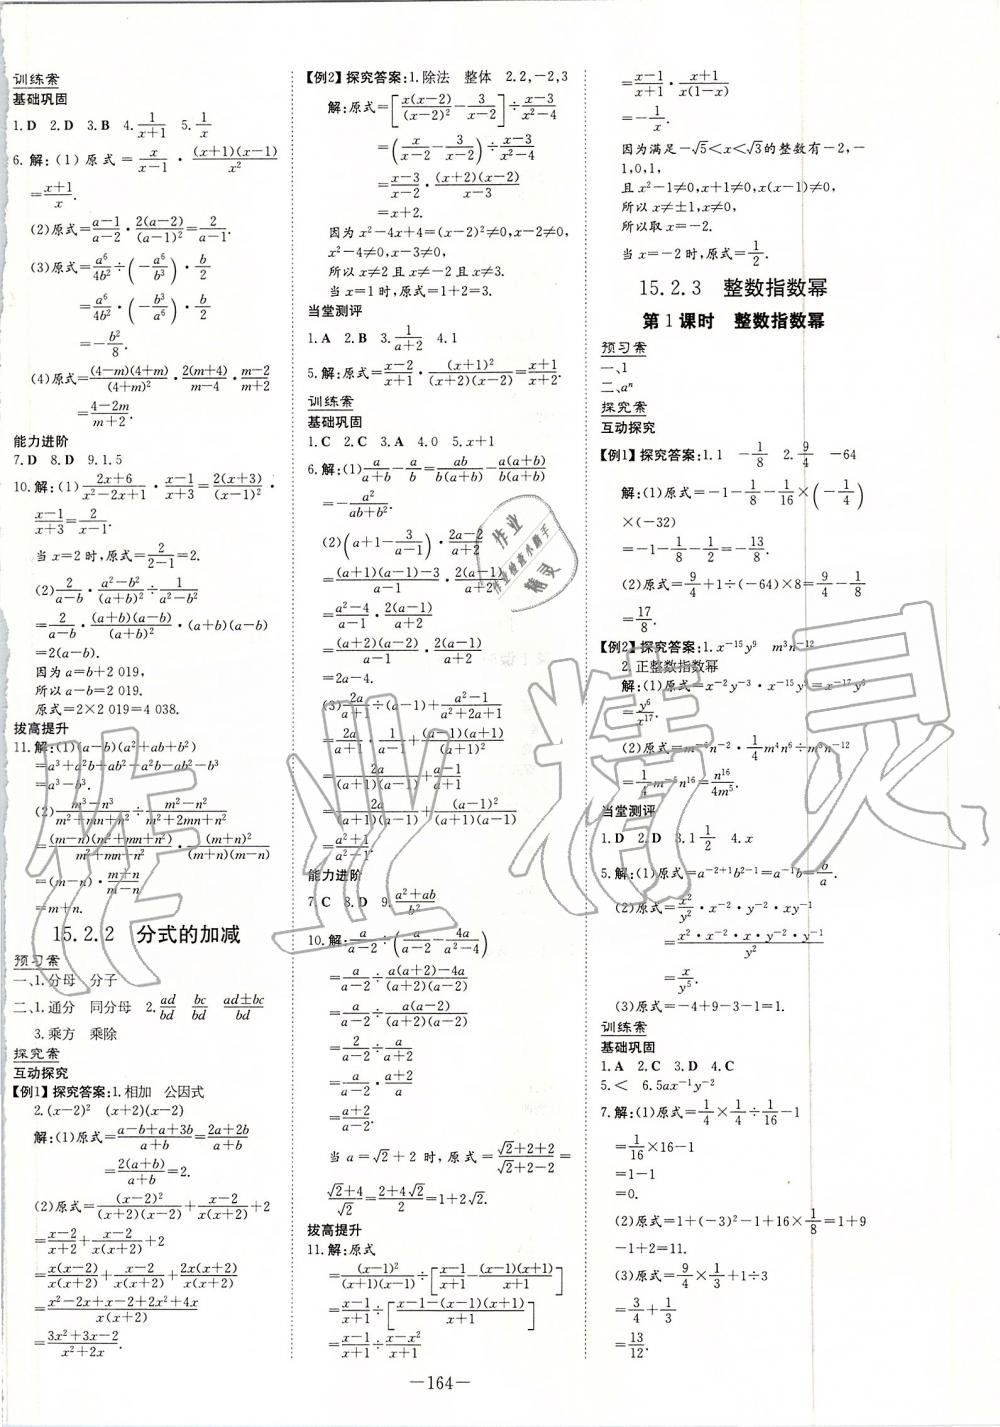 训练案
基础巩固
1.D 2.D 3.B 4.1/(x+1) 5.1/x
6.解:(1)原式=x/(x-1)·(x+1)(x-1)/x²
=(x+1)/x.
(2)原式=(a-1)/(a-2)·2(a-2)/(a-1)²=2/(a-1).
(3)原式=a⁶/4b²÷(-a⁶/b³)·b/2
=a⁶/4b²·(-b³/a⁶)·b/2
=-b²/8.
(4)原式=(4-m)(4+m)/(4+m)²·2(m+4)/(m-4)·(m-2)/(m+2)
=(4-2m)/(m+2).
能力进阶
7.D 8.D 9.1.5
10.解:(1)(2x+6)/(x²-2x+1)·(x-1)/(x+3)=2(x+3)/(x-1)²·
(x-1)/(x+3)=2/(x-1).
当x=2时,原式=2/(2-1)=2.
(2)2/(a-b)·(a²-b²)/(a+b)²÷1/(a²-b²)
=2/(a-b)·(a+b)(a-b)/(a+b)²·(a+b)(a-b)
=2(a-b).
因为a=b+2 019,
所以a-b=2 019.
原式=2×2 019=4 038.
拔高提升
11.解:(1)(a-b)(a²+ab+b²)
=a³+a²b+ab²-a²b-ab²-b³
=a³-b³.
(2)(m³-n³)/(m²+mn+n²)÷(m²-n²)/(m²+2mn+n²)
=(m-n)(m²+mn+n²)/(m²+mn+n²)·(m+n)²/(m+n)(m-n)
=(m-n)·(m+n)/(m-n)
=m+n.
15.2.2 分式的加减
预习案
一、1.分母 分子
二、1.通分 同分母 2.ad/bd bc/bd (ad±bc)/bd
3.乘方 乘除
探究案
互动探究
【例1】探究答案:1.相加 公因式
2.(x-2)² (x+2)(x-2)
解:(1)原式=(a-b+a+3b)/(a+b)=(2a+2b)/(a+b)
=2(a+b)/(a+b)=2.
(2)原式=(x-2)²/(x+2)(x-2)+(x-2)/x(x+2)+2
=(x-2)/(x+2)+(x-2)/x(x+2)+2
=x(x-2)/x(x+2)+(x-2)/x(x+2)+2x(x+2)/x(x+2)
=(x²-2x+x-2+2x²+4x)/x(x+2)
=(3x²+3x-2)/(x²+2x).
【例2】探究答案:1.除法 整体 2.2,-2,3
解:原式=[x(x-2)/(x-2)²-3/(x-2)]÷(x-3)/(x²-4)
=(x/(x-2)-3/(x-2))÷(x-3)/(x²-4)
=(x-3)/(x-2)·(x+2)(x-2)/(x-3)
=x+2.
因为x²-4x+4=(x-2)²≠0,x-2≠0,
x²-4≠0,x-3≠0,
所以x≠2且x≠-2且x≠3.
当x=1时,原式=1+2=3.
当堂测评
1.A 2.B 3.1/(a+2) 4.1
5.解:原式=(x-2)/(x+1)·(x+1)²/(x+2)(x-2)=(x+1)/(x+2).
训练案
基础巩固
1.C 2.C 3.A 4.0 5.x+1
6.解:(1)a/(a+b)-a/b=ab/b(a+b)-a(a+b)/b(a+b)
=-a²/(ab+b²).
(2)(a+1-3/(a-1))·(2a-2)/(a+2)
=((a+1)(a-1)-3)/(a-1)·2(a-1)/(a+2)
=(a²-4)/(a-1)·2(a-1)/(a+2)
=(a+2)(a-2)/(a-1)·2(a-1)/(a+2)
=2a-4.
(3)2a/(a+1)÷(a-1)+(a²-1)/(a²+2a+1)
=2a/(a+1)·1/(a-1)+(a+1)(a-1)/(a+1)²
=2a/(a+1)(a-1)+(a-1)²/(a+1)(a-1)
=(a²+1)/(a²-1).
能力进阶
7.C 8.D 9.(a²+ab)/b²
10.解:a/(a-2)÷(a/(a-2)-4a/(a²-4))
=a/(a-2)÷(a(a+2)-4a)/(a+2)(a-2)
=a/(a-2)÷a(a-2)/(a+2)(a-2)
=a/(a-2)÷a/(a+2)
=a/(a-2)·(a+2)/a
=(a+2)/(a-2).
当a=√2+2时,原式=(√2+2+2)/(√2+2-2)=
(√2+4)/√2=(2+4√2)/2=1+2√2.
拔高提升
11.解:原式
=(x-1)²/(x+1)(x-1)÷[(x-1)/(x+1)-(x-1)(x+1)/(x+1)]
=(x-1)/(x+1)÷[(x-1-(x-1)(x+1))/(x+1)]
=(x-1)/(x+1)÷(x-x²)/(x+1)
=(x-1)/(x+1)·(x+1)/x(1-x)
=-1/x.
因为满足-√5<x<√3的整数有-2,-
1,0,1,
且x²-1≠0,x+1≠0,x(x-1)≠0,
所以x≠±1,x≠0,
所以取x=-2.
当x=-2时,原式=1/2.
15.2.3 整数指数幂
第1课时 整数指数幂
预习案
一、1
二、aⁿ
探究案
互动探究
【例1】探究答案:1.1 -1/8 2.9/4 -64
解:(1)原式=-1-1/8-1/16×(-1/4)
×(-32)
=-1-1/8-1/2=-13/8.
(2)原式=9/4+1÷(-64)×8=9/4-1/8
=17/8.
【例2】探究答案:1.x⁻¹⁵y⁹ m³n⁻¹²
2.正整数指数幂
解:(1)原式=x⁻²y⁻³·x⁻¹⁵y⁹=x⁻¹⁷y⁶
=y⁶/x¹⁷.
(2)原式=m⁻⁶n⁻²·1/4m⁴n⁶÷m³n⁻¹²
=1/4m⁻⁵n¹⁶=n¹⁶/4m⁵.
当堂测评
1.D 2.D 3.1 1/2 4.x
5.解:(1)原式=a⁻²⁺¹b²⁻¹=a⁻¹b=b/a.
(2)原式=x²/y²·x⁻²·y⁻²·xy⁻¹
=x²·x⁻²·x·y⁻²·y⁻¹/y²
=x/y⁵.
(3)原式=-4+9-3-1=1.
训练案
基础巩固
1.A 2.C 3.D 4.C
5.< 6.5ax⁻¹y⁻²
7.解:(1)原式=1/4×1/4÷1/16-1
=1/16×16-1
=1-1
=0.
(2)原式=1+(-3)²-1+16×1/8=1+9
-1+2=11.
(3)原式=9/4×1/3+1÷3
=3/4+1/3
=13/12.
-164-
作业精灵
作业
作业检查小助手
精灵